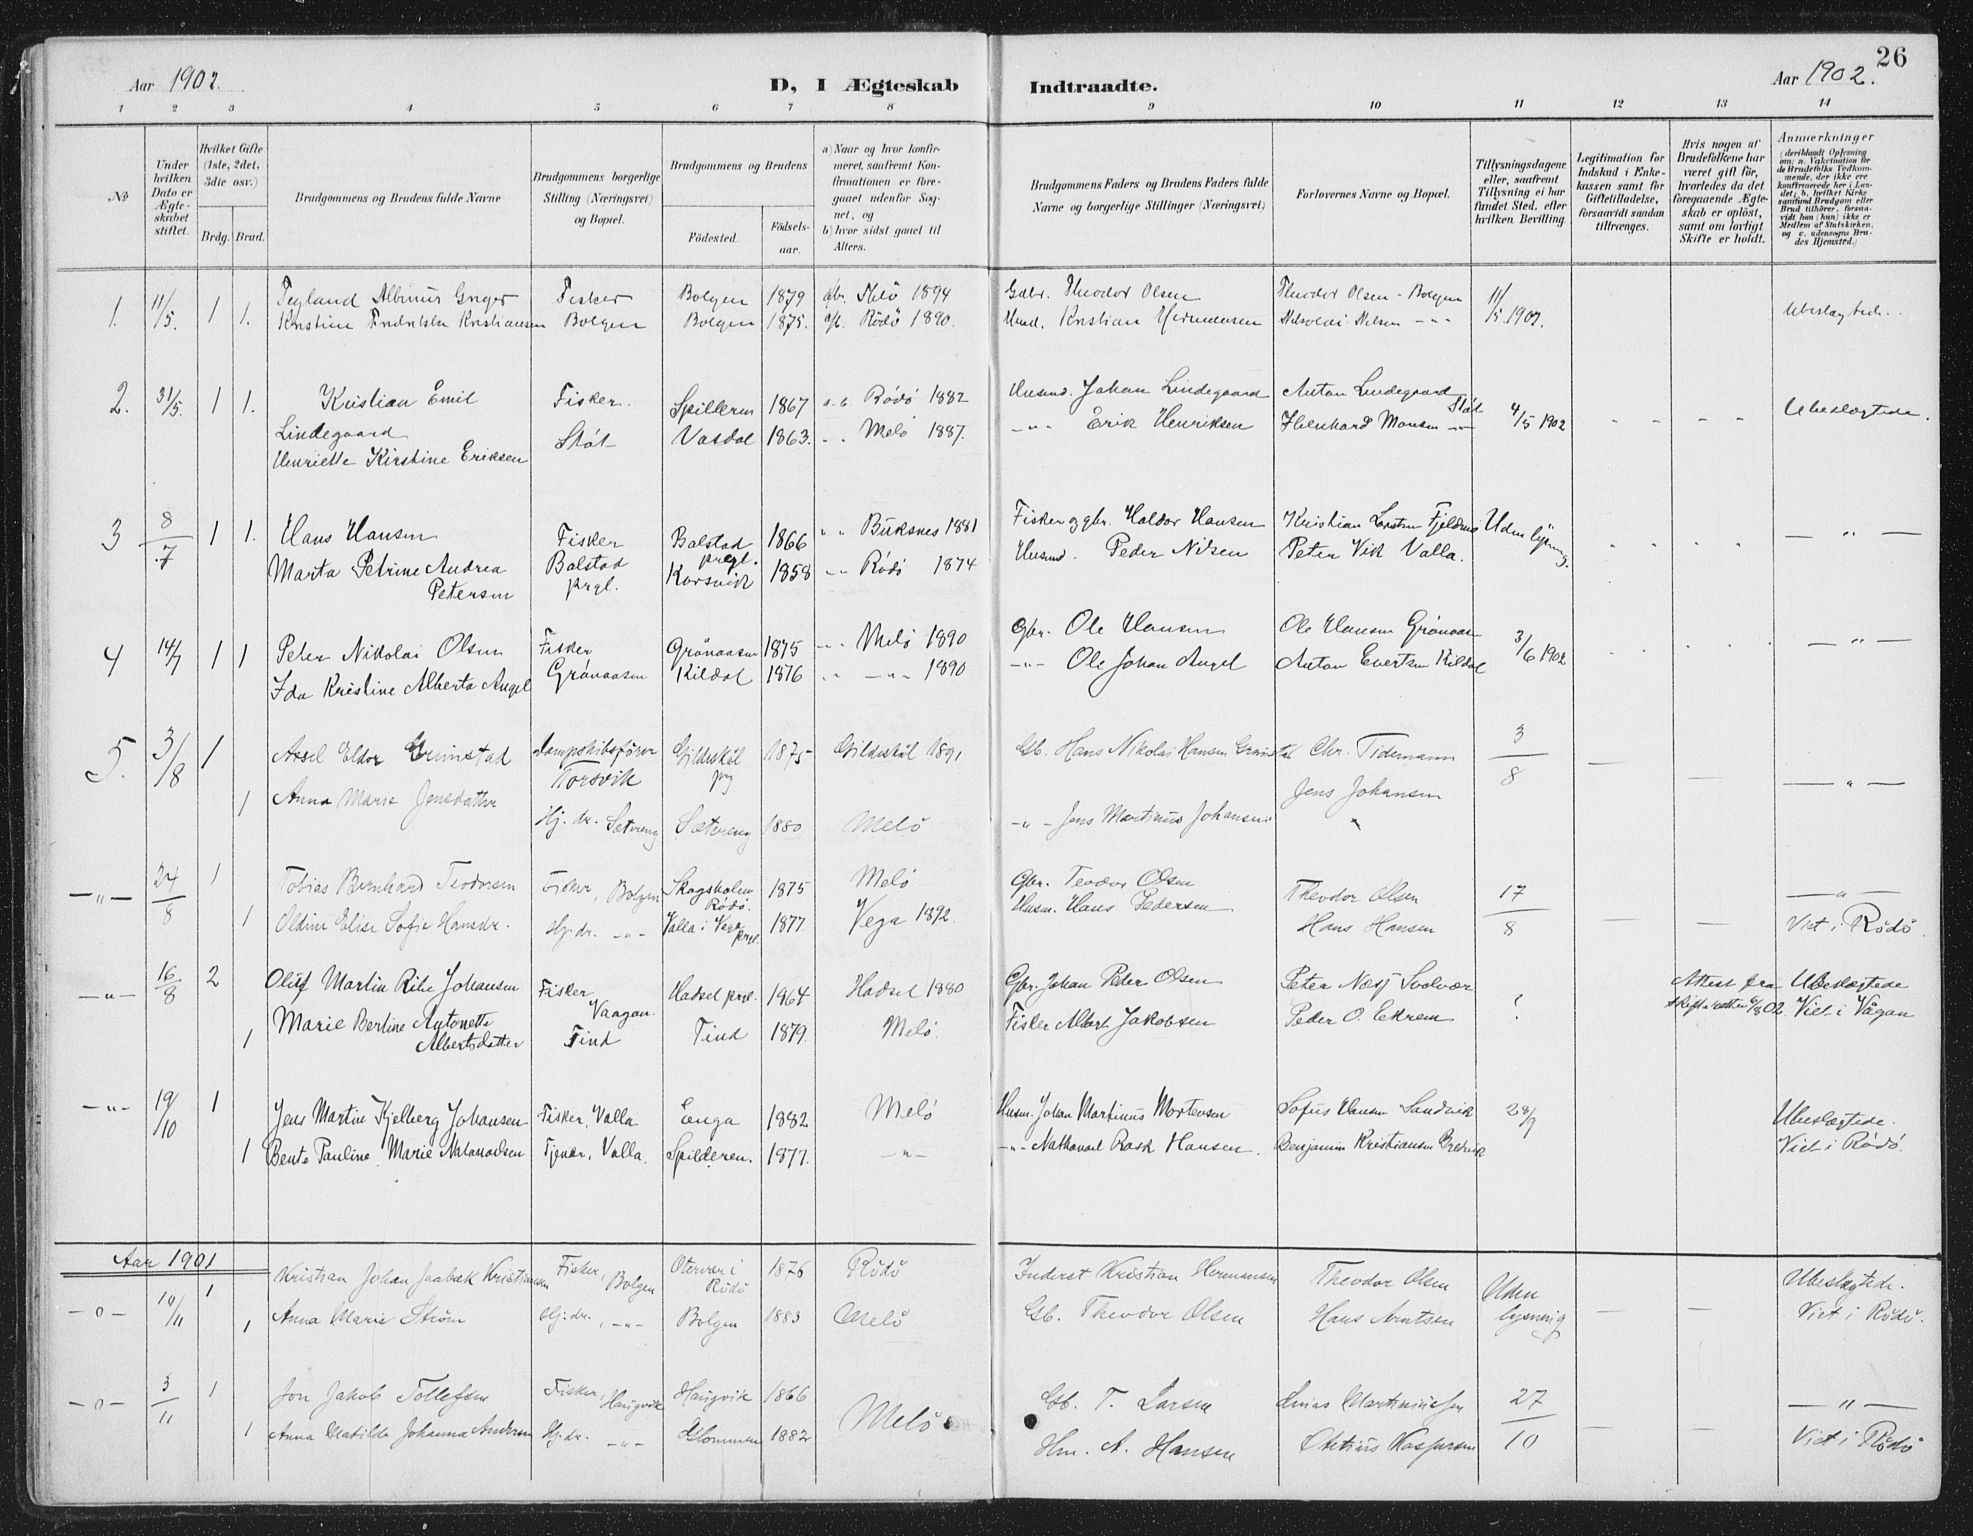 26
Aar 1902.
D, I Ægteskab Indtraadte.
Aar 1902.
1 2 3 4 5 6 7 8 9 10 11 12 13 14
No
Under hvilken Dato er Ægteskabet stiftet.
Hvilket Gifte (1ste, 2det, 3die osv.)
Brdg. Brud.
Brudgommens og Brudens fulde Navne
Brudgommens borgerlige Stilling (Næringsvei) og Bopæl.
Brudgommens og Brudens
Födested. Födsels-aar.
a) Naar og hvor konfirmeret, saafremt Konfirmationen er foregaaet udenfor Sognet, og
b) hvor sidst gaaet til Alters.
Brudgommens Faders og Brudens Faders fulde Navne og borgerlige Stillinger (Næringsvei)
Forlovernes Navne og Bopæl.
Tillysningsdagene eller, saafremt Tillysning ei har fundet Sted, efter hvilken Bevilling.
Legitimation for Indskud i Enkekassen samt for Giftetilladelse, forsaavidt saadan tiltrænges.
Hvis nogen af Brudefolkene har været gift för, hvorledes da det foregaaende Ægteskab er oplöst, samt om lovligt Skifte er holdt.
Anmærkninger (deriblandt Oplysning om: a. Vakcination for de Brudefolks Vedkommende, der ikke ere konfirmerede her i Landet; b. hvilket Kirkesamfund Brudgom eller Brud tilhörer, forsaavidt han (hun) ikke er Medlem af Statskirken, og c. udensogns Brudes Hjemsted.)
1. 11/5. 1 1. Tegland Albinus Fisker Bolgen 1879 Melö 1894 Gdbr. Theodor Olsen Theodor Olsen - Bolgen 11/5 1902. Ubeslægtede.
Kristine Kristiansen Bolgen Bolgen 1875. Rödö 1890. Kristian Nilsen -"-
2. 31/5. 1 1. Kristian Emil Fisker. Spilleren 1867 Rödö 1882 Husmd. Johan Lindegaard Anton Lindegaard Stöt 4/5 1902 - - - Ubeslægtede.
Lindegaard Stöt Vasdal 1863. " " Melö 1887. -"- Erik Henriksen Monsen -"-
Henriette Kirstine Eriksen
3 8/7 1 1. Hans Hansen Fisker Balstad prgl. 1866 " " Buksnes 1881 Fisker og gbr. Haldor Hansen Kristian Uden lysning. - " -
Marta Petrine Andrea Petersen Balstad prgl. Korsvik 1858 " " Rödö 1874 Husmd. Peder Nilsen Peter Vik Valla.
4 14/7 1 1 Peter Nikolai Olsen Fisker Grönaasen 1875 " " Melö 1890 Gbr. Ole Hansen Ole Hansen Grönaasen 3/6 1902 - " -
Ida Kristine Alberta Angel Grönaasen Kildal 1876 " -"- 1890 -"- Ole Johan Angel Anton Evertsen Kildal
5. 3/8 1 Axsel Eldor Grimstad Dampskibsförer Torsvik Gildeskål prg 1875 Gildeskål 1891 Gb. Hans Nikolai Hansen Grimstad Chr. Tidemann 3/8 — — - " -
1 Anna Marie Jensdatter Hj. dr. Sætvreng Sætvreng 1880 Melö -"- Jens Martinus Johansen Jens Johansen
-"- 24/8 1 Tobias Bernhard Teodorsen Fisker, Bolgen Skogsholm Rödö. 1875 Melö Gbr. Teodor Olsen Theodor Olsen 17/8 — — - " -
1 Oldine Elise Sofie Hansdr. Hj. dr. -"- Valla i Vega prgl. 1877 Vega 1892. Husm. Hans Pedersen Hans Hansen Viet i Rödö
-"- 16/8 2 Oluf Martin Johansen Fisker Vaagan Hadsel prgl. 1864 Hadsel 1880 Gbr. Johan Peder Olsen Peter Næsj Svolvær ? Attest fra skifteretten 6/8 02. Ubeslægtede
1 Marie Berline Antonette Albertsdatter Tind Tind 1879. Melö. Fisker Albert Jakobsen Peder O. Ekrem Viet i Vågan
-"- 19/10 1 Jens Martin Kjelberg Johansen Fisker, Valla Enga 1882 Melö Husm. Johan Martinus Mortensen Sofus Hansen Sandvik 28/9 Ubeslægtede.
1 Bente Pauline Marie Natanaelsen Tjener, Valla. Spilderen. 1877. -"- -"- Nathanael Rask Hansen. Benjamin Kristiansen Viet i Rödö.
Aar 1901
-o- 10/11 1 Kristian Johan Kristiansen Fisker, Bolgen Otervær i Rödö 1876 Rödö Inderst Kristian Hermansen Theodor Olsen Uden lysning — — Ubeslægtede.
1 Anna Marie Ström Hj. dr., -"- Bolgen 1883 Melö Gb. Theodor Olsen Hans Arntsen Viet i Rödö.
-o- 3/11 1 Jon Jakob Tollefsen Fisker, Haugvik Haugvik 1866 Melö Gb. T. Larsen 27/10 — — - " -
1 Anna Matilde Johanna Andersen Hj. dr. -"- Glommen 1882 Hm. A. Hansen Viet i Rödö